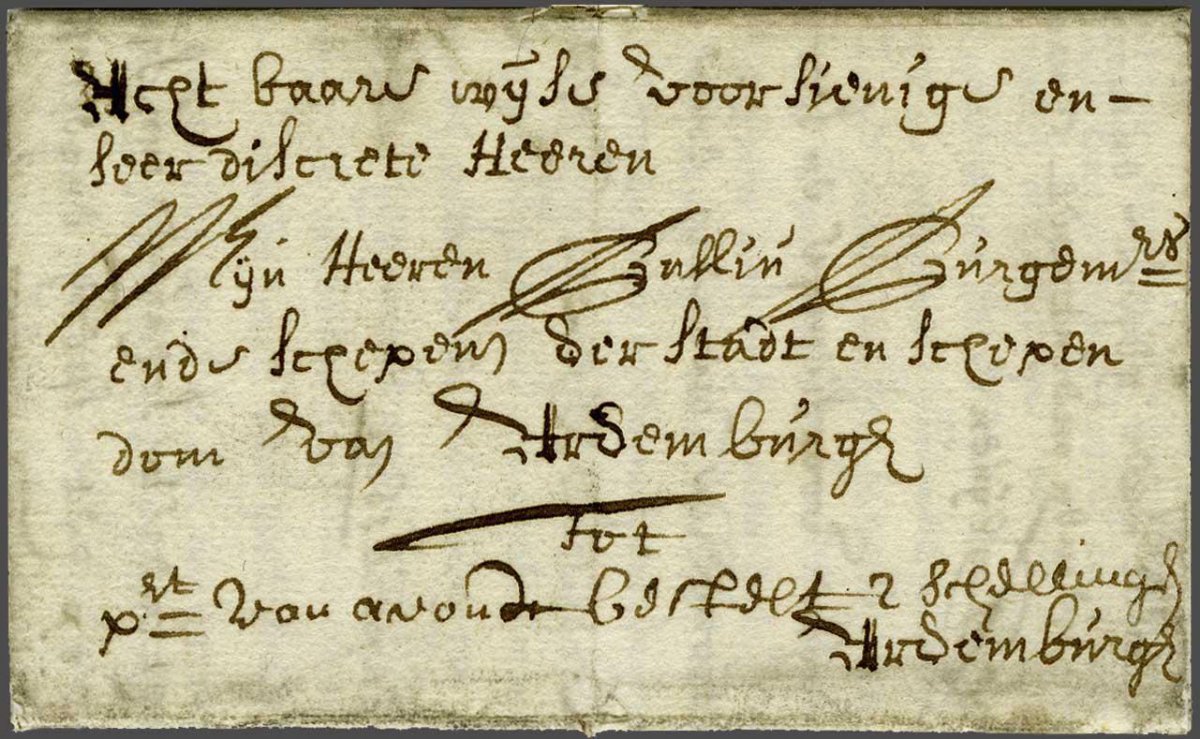 Achtbaare wÿse voorsienige en-
seer discrete Heeren
Mÿn Heeren Balliu Burgem rs
ende schepenen der stadt en schepen
dom van Ardemburgh
tot
p rt van avondt bestelt 2 schellingh
Ardemburgh